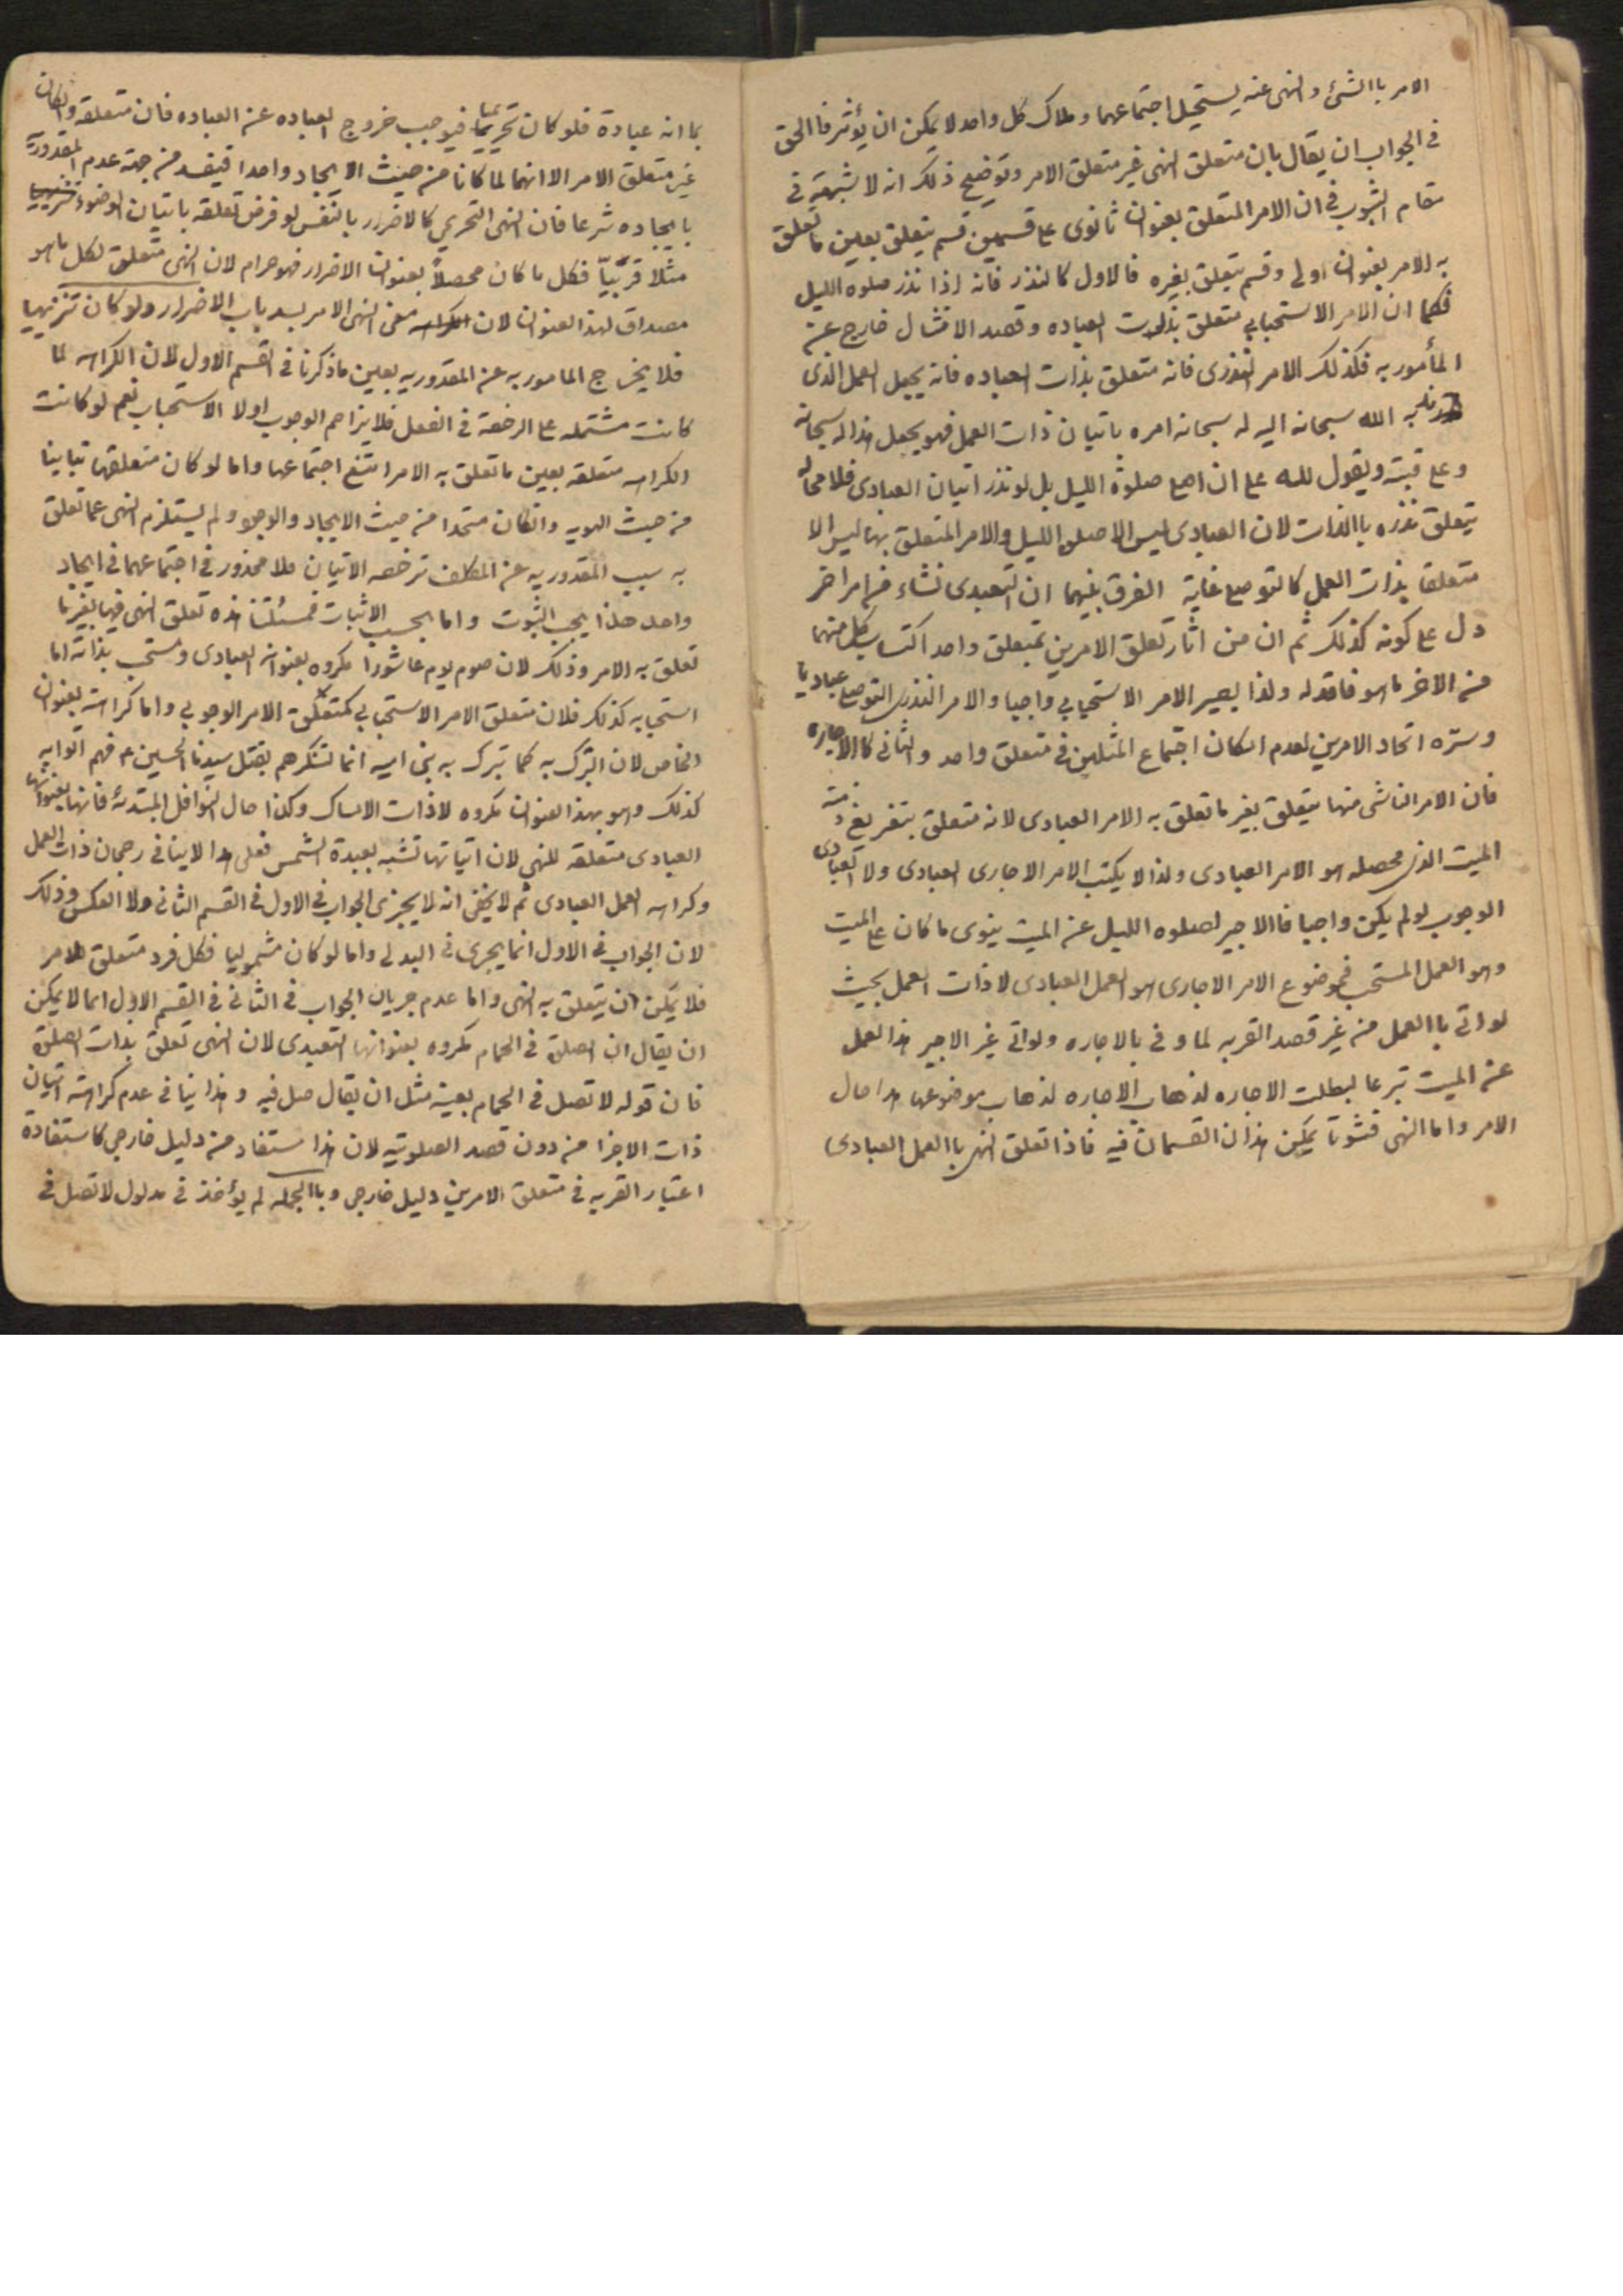 الامر باالشئ و النهى عنه يستحيل اجتماعهما و ملاك كل واحد لا يمكن ان يؤثر فاالحق
فى الجواب ان يقال بان متعلق النهى غير متعلق الامر و توضيح ذلك انه لا شبهة فى
مقام الثبوت فى ان الامر المتعلق بعنوان ثانوى على قسمين قسم يتعلق بعين ما تعلق
به الامر بعنوان اولى و قسم يتعلق بغيره فالاول كالنذر فانه اذا نذر صلوه الليل
فكما ان الامر الاستحبابى متعلق بذات العباده و قصد الامتثال خارج عن
المأمور به فكذلك الامر النذرى فانه متعلق بذات العباده فانه يجعل العمل الذى
ندبه الله سبحانه اليه له سبحانه امره باتيان ذات العمل فهو يجعل هذا له سبحانه
و على رقبته و يقول لله على ان اصلى صلوة الليل بل لو نذر اتيان العبادى فلا محاله
يتعلق نذره باالذات لان العبادى ليس الا صلوه الليل و الامر المتعلق بها ليس الا
متعلقا بذات العمل كالتوصلى غاية الفرق بينهما ان التعبدى نشاء من امر اخر
دل على كونه كذلك ثم ان من اثار تعلق الامرين بمتعلق واحد اكتساب كل منهما
من الاخر ما هو فاقد له و لذا يصير الامر الاستحبابى واجبا و الامر النذرى التوصلى عباديا
و سرّه اتحاد الامرين لعدم امكان اجتماع المثلين فى متعلق واحد و الثانى كاالاجاره
فان الامر الناشى منها يتعلق بغير ما تعلق به الامر العبادى لانه متعلق بتفريغ ذمة
الميت الذى محصله هو الامر العبادى و لذا لا يكتسب الامر الاجارى العبادى و لا العبادى
الوجوب لو لم يكن واجبا فاالاجير لصلوه الليل عن الميت ينوى ما كان على الميت
و هو العمل المستحب فموضوع الامر الاجارى هو العمل العبادى لا ذات العمل بحيث
لو اتى باالعمل من غير قصد القربه لما و فى بالاجاره و لو اتى غير الاجير هذا العمل
عن الميت تبرعا لبطلت الاجاره لذهاب الاجاره لذهاب موضوعها هذا حال
الامر و اما النهى فثبوتا يمكن هذان القسمان فيه فاذا تعلق النهى باالعمل العبادى
بما انه عبادة فلو كان تحريميا فيوجب خروج العباده عن العباده فان متعلقه و ان كان
غير متعلق الامر الا انهما لما كانا من حيث الايجاد واحدا فيفسد من جهة عدم المقدورية
بايجاده شرعا فان النهى التحريمى كالاضرار بالنفس لو فرض تعلقه باتيان الوضوء
مثلا قربيّا فكل ما كان محصلاً بعنوان الاضرار فهو حرام لان النهى متعلق لكل ما هو
مصداق لهذا العنوان لان معنى النهى الامر بسد باب الاضرار و لو كان تنزيهيا
فلا يخرج المامور به عن المقدوريه بعين ما ذكرنا فى القسم الاول لان الكراهه لما
كانت مشتمله على الرخصة فى الفعل فلا يزاحم الوجوب او لا الاستحباب نعم لو كانت
الكراهه متعلقه بعين ما تعلق به الامر امتنع اجتماعهما و اما لو كان متعلقها تباينا
من حيث الهويه و ان كان متحدا من حيث الايجاد و الوجود و لم يستلزم النهى عما تعلق
به سبب المقدوريه عن المكلف ترخصه الاتيان فلا محذور فى اجتماعهما فى ايجاد
واحد هذا بحسب الثبوت و اما بحسب الاثبات فمسئلتنا هذه تعلق النهى فيها بغير ما
تعلق به الامر و ذلك لان صوم يوم عاشورا مكروه بعنوانه العبادى و مستحب بذاته اما
استحبابه كذلك فلان متعلق الامر الاستحبابى كمتعلق الامر الوجوبى و اما كراهته بعنوان
الخاص لان التبرك به كما تبرك به بنى اميه انما لتشكرهم بقتل سيدنا الحسين ع فهم اتوا به
كذلك و هو بهذا العنوان مكروه لا ذات الامساك و كذا حال النوافل المبتدئه فانها بعنوانها
العبادى متعلقه للنهى لان اتيانها تشبه بعبدة الشمس فعلى هذا لا ينافى رجحان ذات العمل
و كراهه العمل العبادى ثم لا يخفى انه لا يجرى الجواب فى الاول فى القسم الثانى و لا العكس و ذلك
لان الجواب فى الاول انما يجرى فى البدلى و اما لو كان شموليا فكل فرد متعلق للامر
فلا يمكن ان يتعلق به النهى و اما عدم جريان الجواب فى الثانى فى القسم الاول انما لا يمكن
ان يقال ان الصلوة فى الحمام مكروه بعنوانها التعبدى لان النهى تعلق بذات الصلوة
فان قوله لا تصل فى الحمام بعينه مثل ان يقال صل فيه و هذا ينافى عدم كراهته اتيان
ذات الاجزا من دون قصد الصلوتيه لان هذا مستفاد من دليل خارجى كاستفادة
اعتبار القربه فى متعلق الامر من دليل خارجى و باالجمله لم يؤخذ فى مدلول لا تصل فى